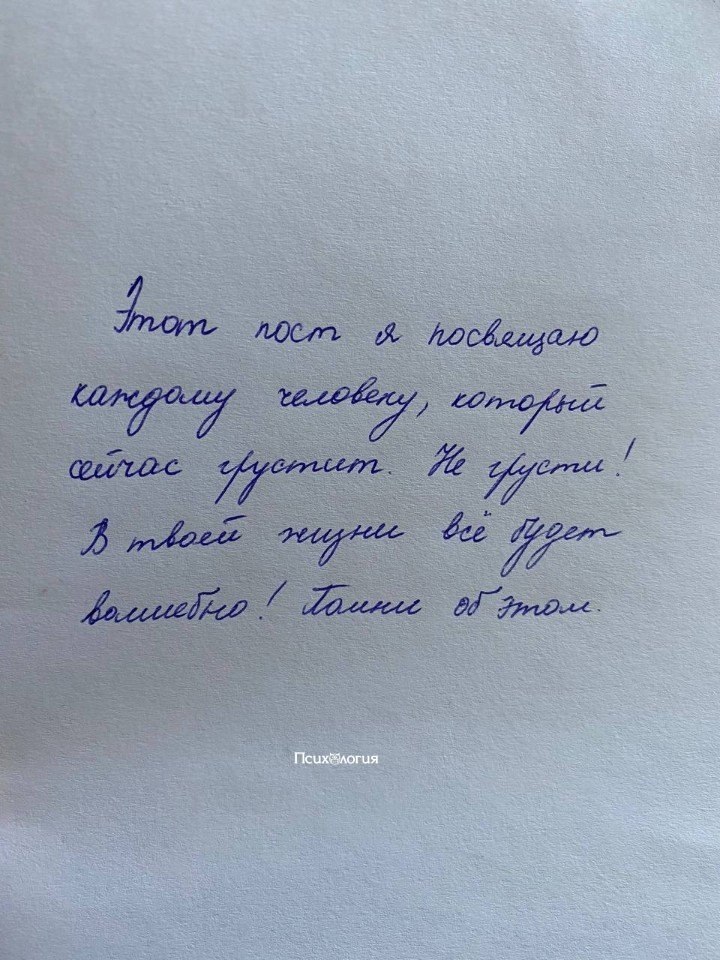 Этот пост я посвящаю
каждому человеку, который
сейчас грустит. Не грусти!
В твоей жизни всё будет
волшебно! Помни об этом.
Психология